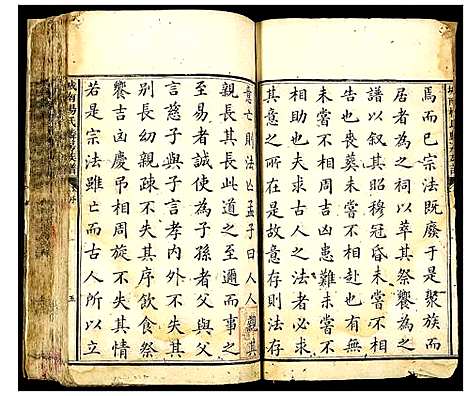 焉而已宗法既廢于是聚族而
居者為之祠以萃其祭饗為之
譜以叙其昭穆冠昏未嘗不相
告也喪葬未嘗不相赴也有無
未嘗不相周吉凶患難未嘗不
相助也夫求古人之法者必求
其意意存則法存
意亡則法亡孟子曰人人親其
親長其長此道之至邇而事之
至易者誠使為子孫者父與父
言慈子與子言孝內外不失其
別長幼親疎不失其序飲食祭
饗吉凶相周旋不失其情
若是宗法雖亡而古人所以立
五